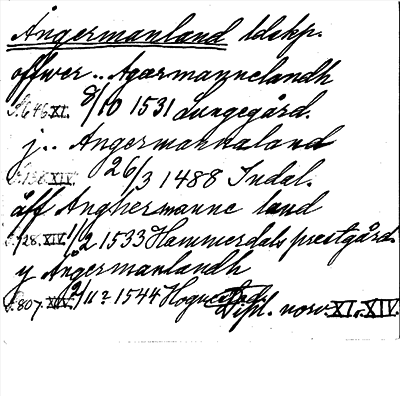 Ångermanland ldskp.
offwer .. Agærmannelandh
S. 646 XI. 8/10 1531 Lungegård.
j .. Angermannaland
S. 138 XIV. 26/3 1488 Indal.
äff Anghermanne land
S. 728 XIV. 1/2 1533 Hammerdals prestgård.
y Ångermanlandh
S. 807 XIV. 2/11? 1544
Dipl. norv. XI, XIV.